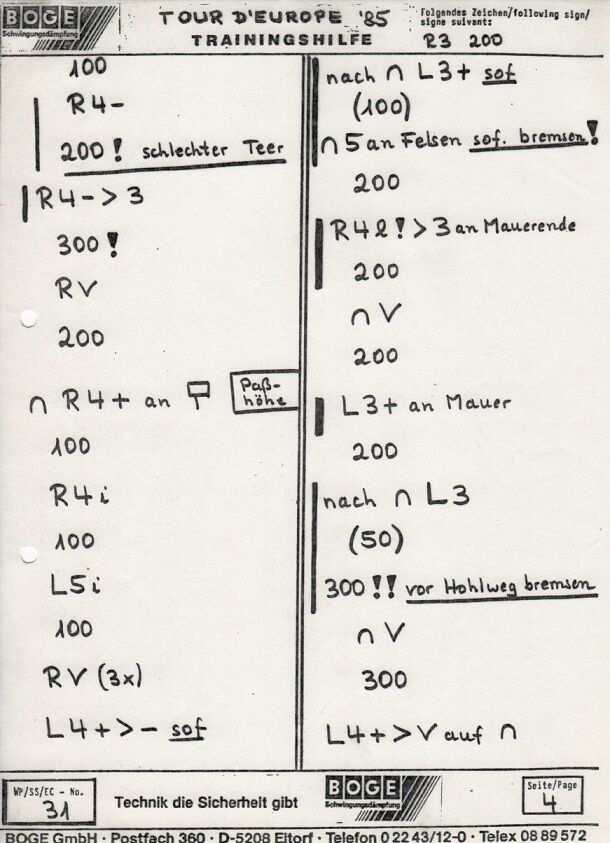 BOGE
Schwingungsdämpfung
TOUR D'EUROPE '85
TRAININGSHILFE
Folgendes Zeichen/following sign/
signe suivant:
R3 200
100
R4-
200! schlechter Teer
R4-> 3
300!
RV
200
∩ R4+ an
Paß-
höhe
100
R4i
100
L5i
100
RV (3x)
L4+>- sof
nach ∩ L3+ sof
(100)
∩5 an Felsen sof. bremsen!
200
R4l!>3 an Mauerende
200
∩ V
200
L3+ an Mauer
200
nach ∩ L3
(50)
300!! vor Hohlweg bremsen
∩ V
300
L4+>V auf ∩
WP/SS/EC - No.
31
Technik die Sicherheit gibt
BOGE
Schwingungsdämpfung
Seite/Page
4
BOGE GmbH · Postfach 360 · D-5208 Eitorf · Telefon 0 22 43/12-0 · Telex 08 89 572